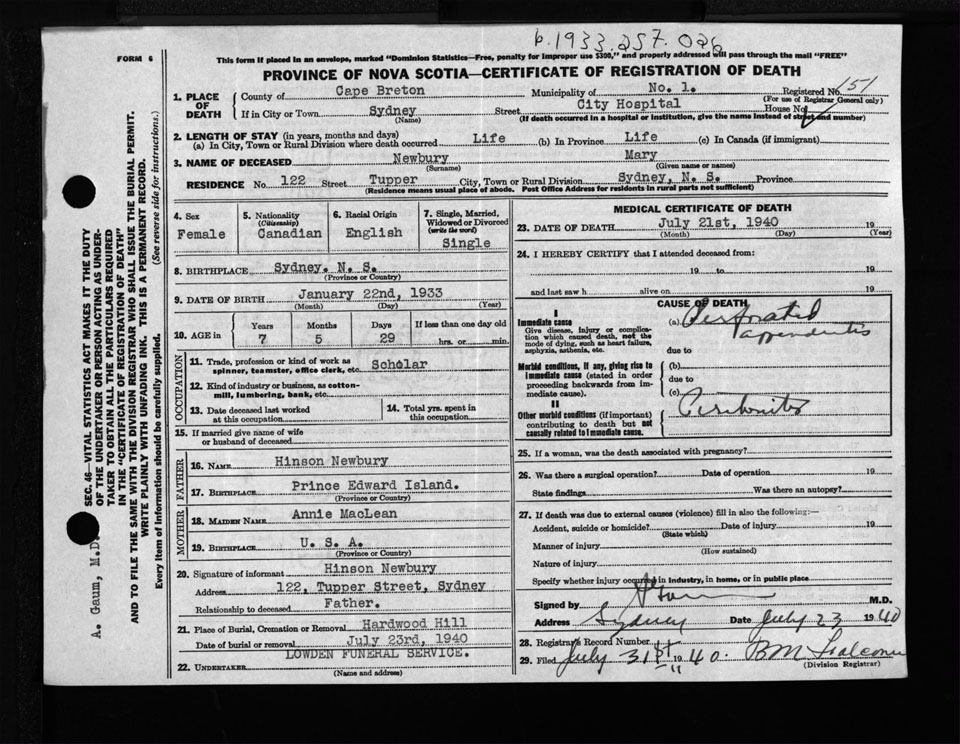 b.1933.257.026
FORM 6
This form if placed in an envelope, marked "Dominion Statistics—Free, penalty for improper use $300," and properly addressed will pass through the mail "FREE"
PROVINCE OF NOVA SCOTIA—CERTIFICATE OF REGISTRATION OF DEATH
1. PLACE OF DEATH
County of Cape Breton Municipality of No. 1. Registered No. 151
(For use of Registrar General only)
If in City or Town Sydney Street City Hospital House No.
(Name) (If death occurred in a hospital or institution, give the name instead of street and number)
2. LENGTH OF STAY (in years, months and days)
(a) In City, Town or Rural Division where death occurred Life (b) In Province Life (c) In Canada (if immigrant)
3. NAME OF DECEASED Newbury Mary
(Surname) (Given name or names)
RESIDENCE No. 122 Street Tupper City, Town or Rural Division Sydney, N. S. Province
(Residence means usual place of abode. Post Office Address for residents in rural parts not sufficient)
4. Sex
Female
5. Nationality
(Citizenship)
Canadian
6. Racial Origin
English
7. Single, Married,
Widowed or Divorced
(write the word)
Single
8. BIRTHPLACE Sydney. N. S.
(Province or Country)
9. DATE OF BIRTH January 22nd, 1933
(Month) (Day) (Year)
10. AGE in
Years Months Days If less than one day old
7 5 29 hrs. or min.
OCCUPATION
11. Trade, profession or kind of work as
spinner, teamster, office clerk, etc. Scholar
12. Kind of industry or business, as cotton-
mill, lumbering, bank, etc.
13. Date deceased last worked
at this occupation
14. Total yrs. spent in
this occupation
15. If married give name of wife
or husband of deceased
FATHER
16. NAME Hinson Newbury
17. BIRTHPLACE Prince Edward Island.
(Province or Country)
MOTHER
18. MAIDEN NAME Annie MacLean
19. BIRTHPLACE U. S. A.
(Province or Country)
20. Signature of informant Hinson Newbury
Address 122, Tupper Street, Sydney
Relationship to deceased Father.
21. Place of Burial, Cremation or Removal Hardwood Hill
Date of burial or removal July 23rd, 1940
LOWDEN FUNERAL SERVICE.
22. UNDERTAKER
(Name and address)
MEDICAL CERTIFICATE OF DEATH
23. DATE OF DEATH July 21st, 1940 19
(Month) (Day) (Year)
24. I HEREBY CERTIFY that I attended deceased from:
19 to 19
and last saw h alive on 19
CAUSE OF DEATH
I
Immediate cause
Give disease, injury or complica-
tion which caused death, not the
mode of dying, such as heart failure,
asphyxia, asthenia, etc.
(a) Perforated
appendicitis
due to
Morbid conditions, if any, giving rise to
immediate cause (stated in order
proceeding backwards from im-
mediate cause).
(b)
due to
(c)
II
Other morbid conditions (if important)
contributing to death but not
causally related to immediate cause.
Peritonitis
25. If a woman, was the death associated with pregnancy?
26. Was there a surgical operation? Date of operation 19
State findings Was there an autopsy?
27. If death was due to external causes (violence) fill in also the following:—
Accident, suicide or homicide? Date of injury 19
(State which)
Manner of injury
(How sustained)
Nature of injury
Specify whether injury occurred in industry, in home, or in public place
Signed by M.D.
Address Sydney Date July 23 1940
28. Registrar's Record Number
29. Filed July 31st 1940 BM Falconer
(Division Registrar)
SEC. 46—VITAL STATISTICS ACT MAKES IT THE DUTY
OF THE UNDERTAKER OR PERSON ACTING AS UNDER-
TAKER TO OBTAIN ALL THE PARTICULARS REQUIRED
IN THE "CERTIFICATE OF REGISTRATION OF DEATH"
AND TO FILE THE SAME WITH THE DIVISION REGISTRAR WHO SHALL ISSUE THE BURIAL PERMIT.
WRITE PLAINLY WITH UNFADING INK. THIS IS A PERMANENT RECORD.
Every item of information should be carefully supplied. (See reverse side for instructions.)
A. Gaum, M.D.